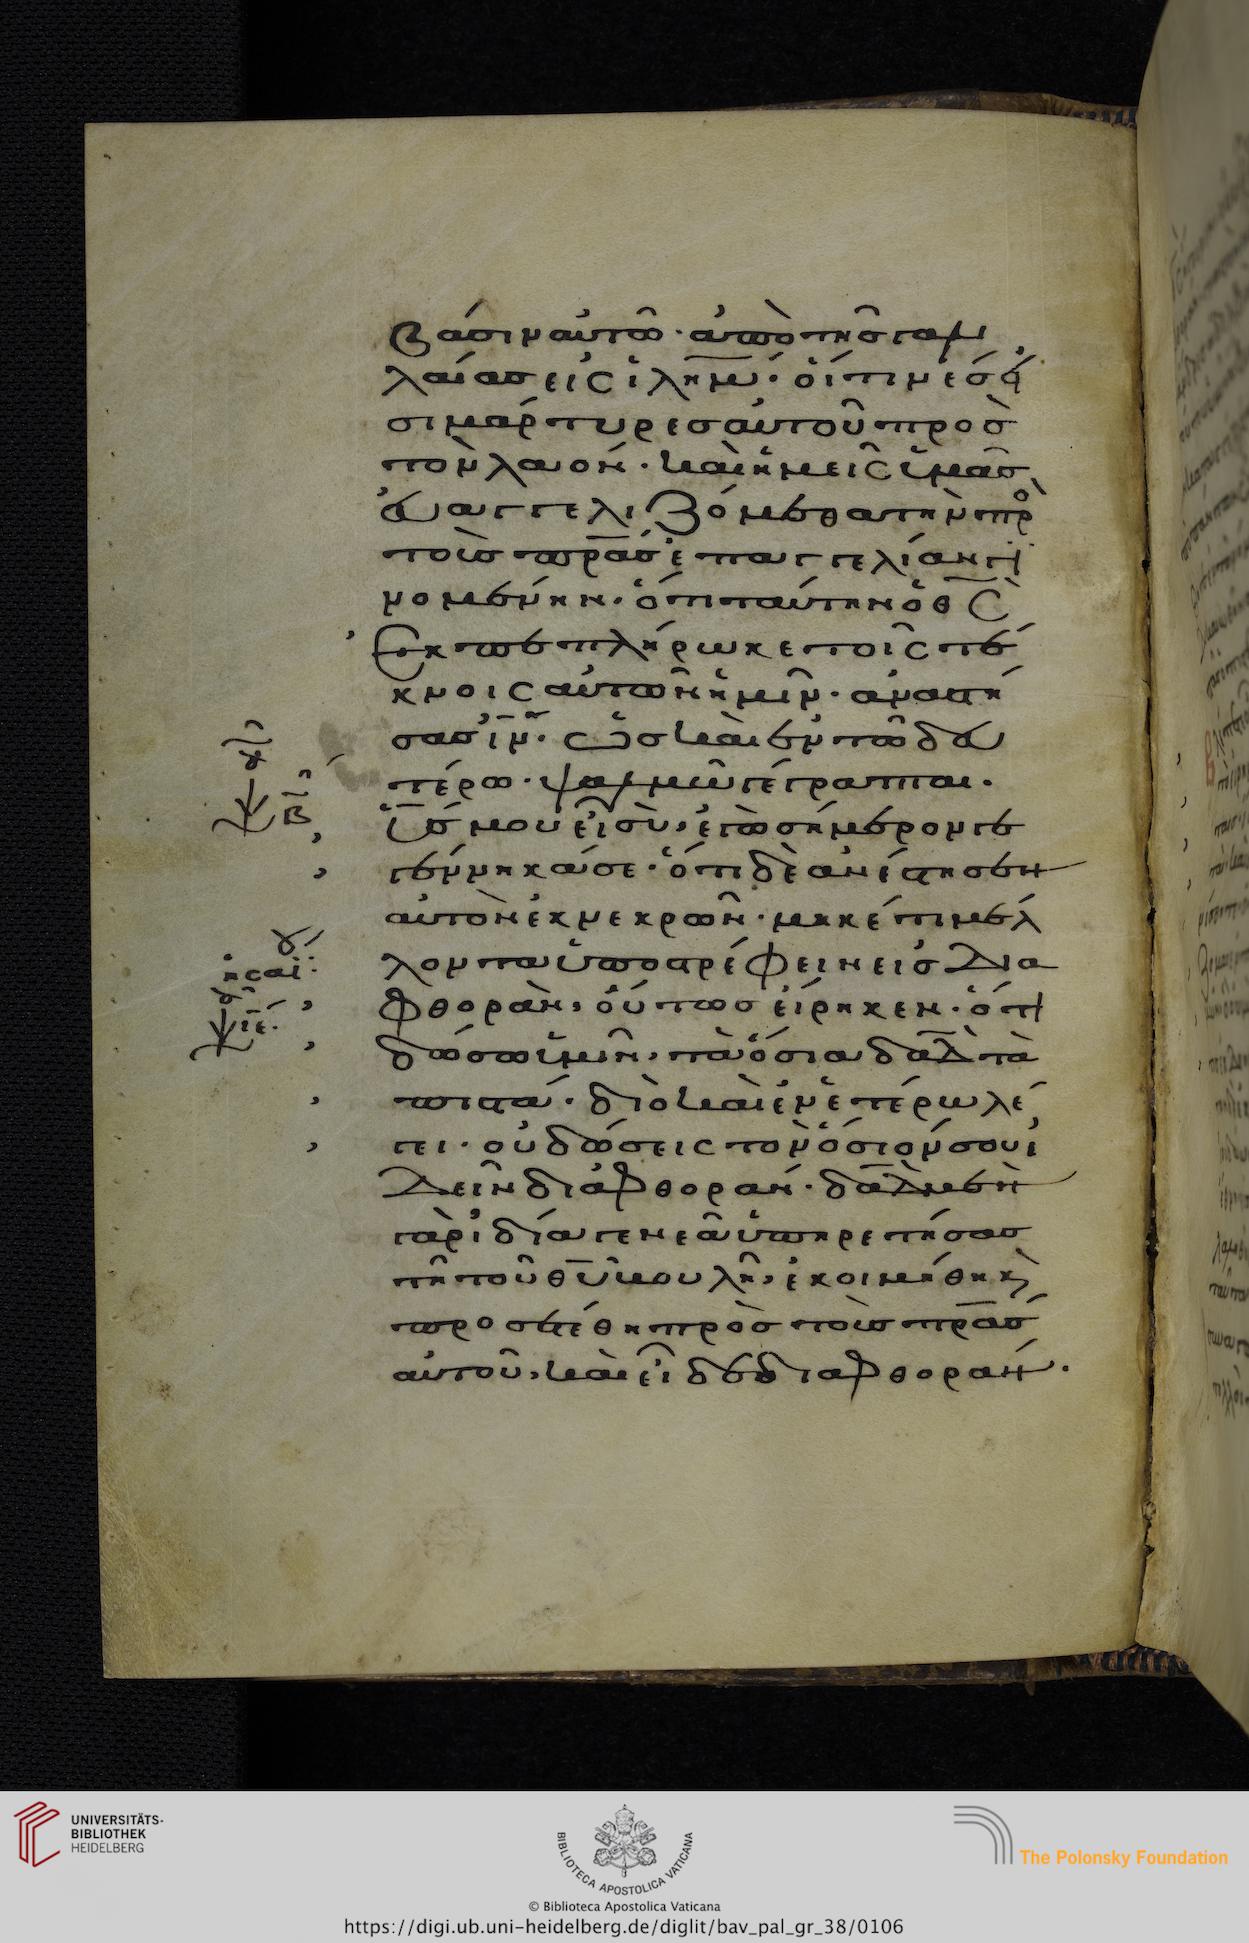 βάσιν αὐτῶ · ἀπὸ τῆς γαλι
λαίας εἰς ἱλημ · οἵτινές εἰ
σι μάρτυρες αὐτοῦ πρὸς
τὸν λαόν · καὶ ἡμεῖς ὑμᾶς
εὐαγγελιζόμεθα τὴν πρὸς
τοὺς πρας ἐπαγγελίαν γι
νομένην · ὅτι ταύτην ὁ θς
ἐκπεπλήρωκε τοῖς τέ
κνοις αὐτῶν ἡμῖν · ἀναστή
σας ιν · ὡς καὶ ἐν τῶ δευ
τέρω · ψαλμῶ γέγραπται ·
υς μου εἶ σὺ, ἐγὼ σήμερον γε
γέννηκά σε · ὅτι δὲ ἀνέστησεν
αὐτὸν ἐκ νεκρῶν · μηκέτι μέλ
λοντα ὑποστρέφειν εἰς δια
φθορὰν, οὕτως εἴρηκεν · ὅτι
δώσω ὑμῖν, τὰ ὅσια δαδ τὰ
πιστά · διὸ καὶ ἐν ἑτέρω λέ
γει · οὐ δώσεις τὸν ὅσιόν σου ἰ
δεῖν διαφθοράν · δαδ μὲν
γὰρ ἰδία γενεᾶ ὑπηρετήσας
τῆ τοῦ θυ βουλῆ, ἐκοιμήθη κὶ
προσετέθη πρὸς τοὺς πρας
αὐτοῦ, καὶ εἶδε διαφθοράν ·
β
γ
ησαΐ
ιε ·
UNIVERSITÄTS-
BIBLIOTHEK
HEIDELBERG
BIBLIOTECA APOSTOLICA VATICANA
© Biblioteca Apostolica Vaticana
The Polonsky Foundation
https://digi.ub.uni-heidelberg.de/diglit/bav_pal_gr_38/0106